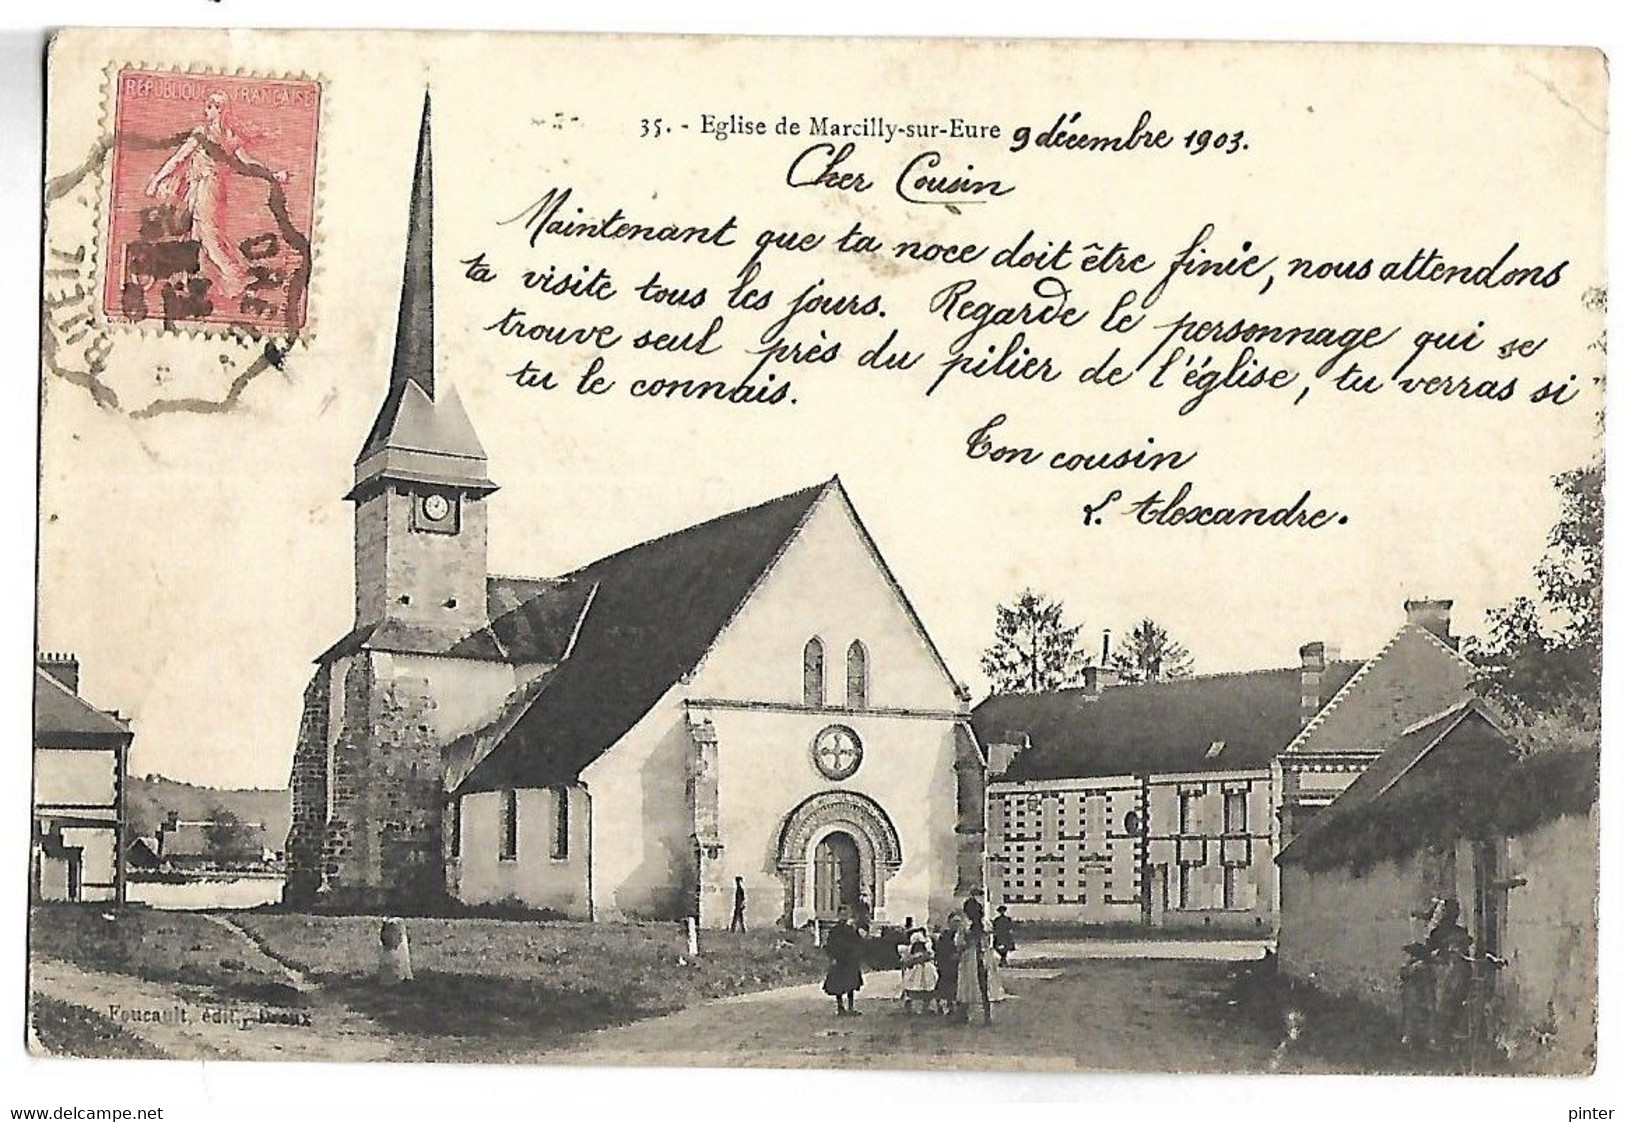 RÉPUBLIQUE FRANÇAISE
35. - Eglise de Marcilly-sur-Eure 9 décembre 1903.
Cher Cousin
Maintenant que ta noce doit être finie, nous attendons
ta visite tous les jours. Regarde le personnage qui se
trouve seul près du pilier de l'église, tu verras si
tu le connais.
Ton cousin
L. Alexandre.
Foucault, édit., Dreux
delcampe.net
pinter